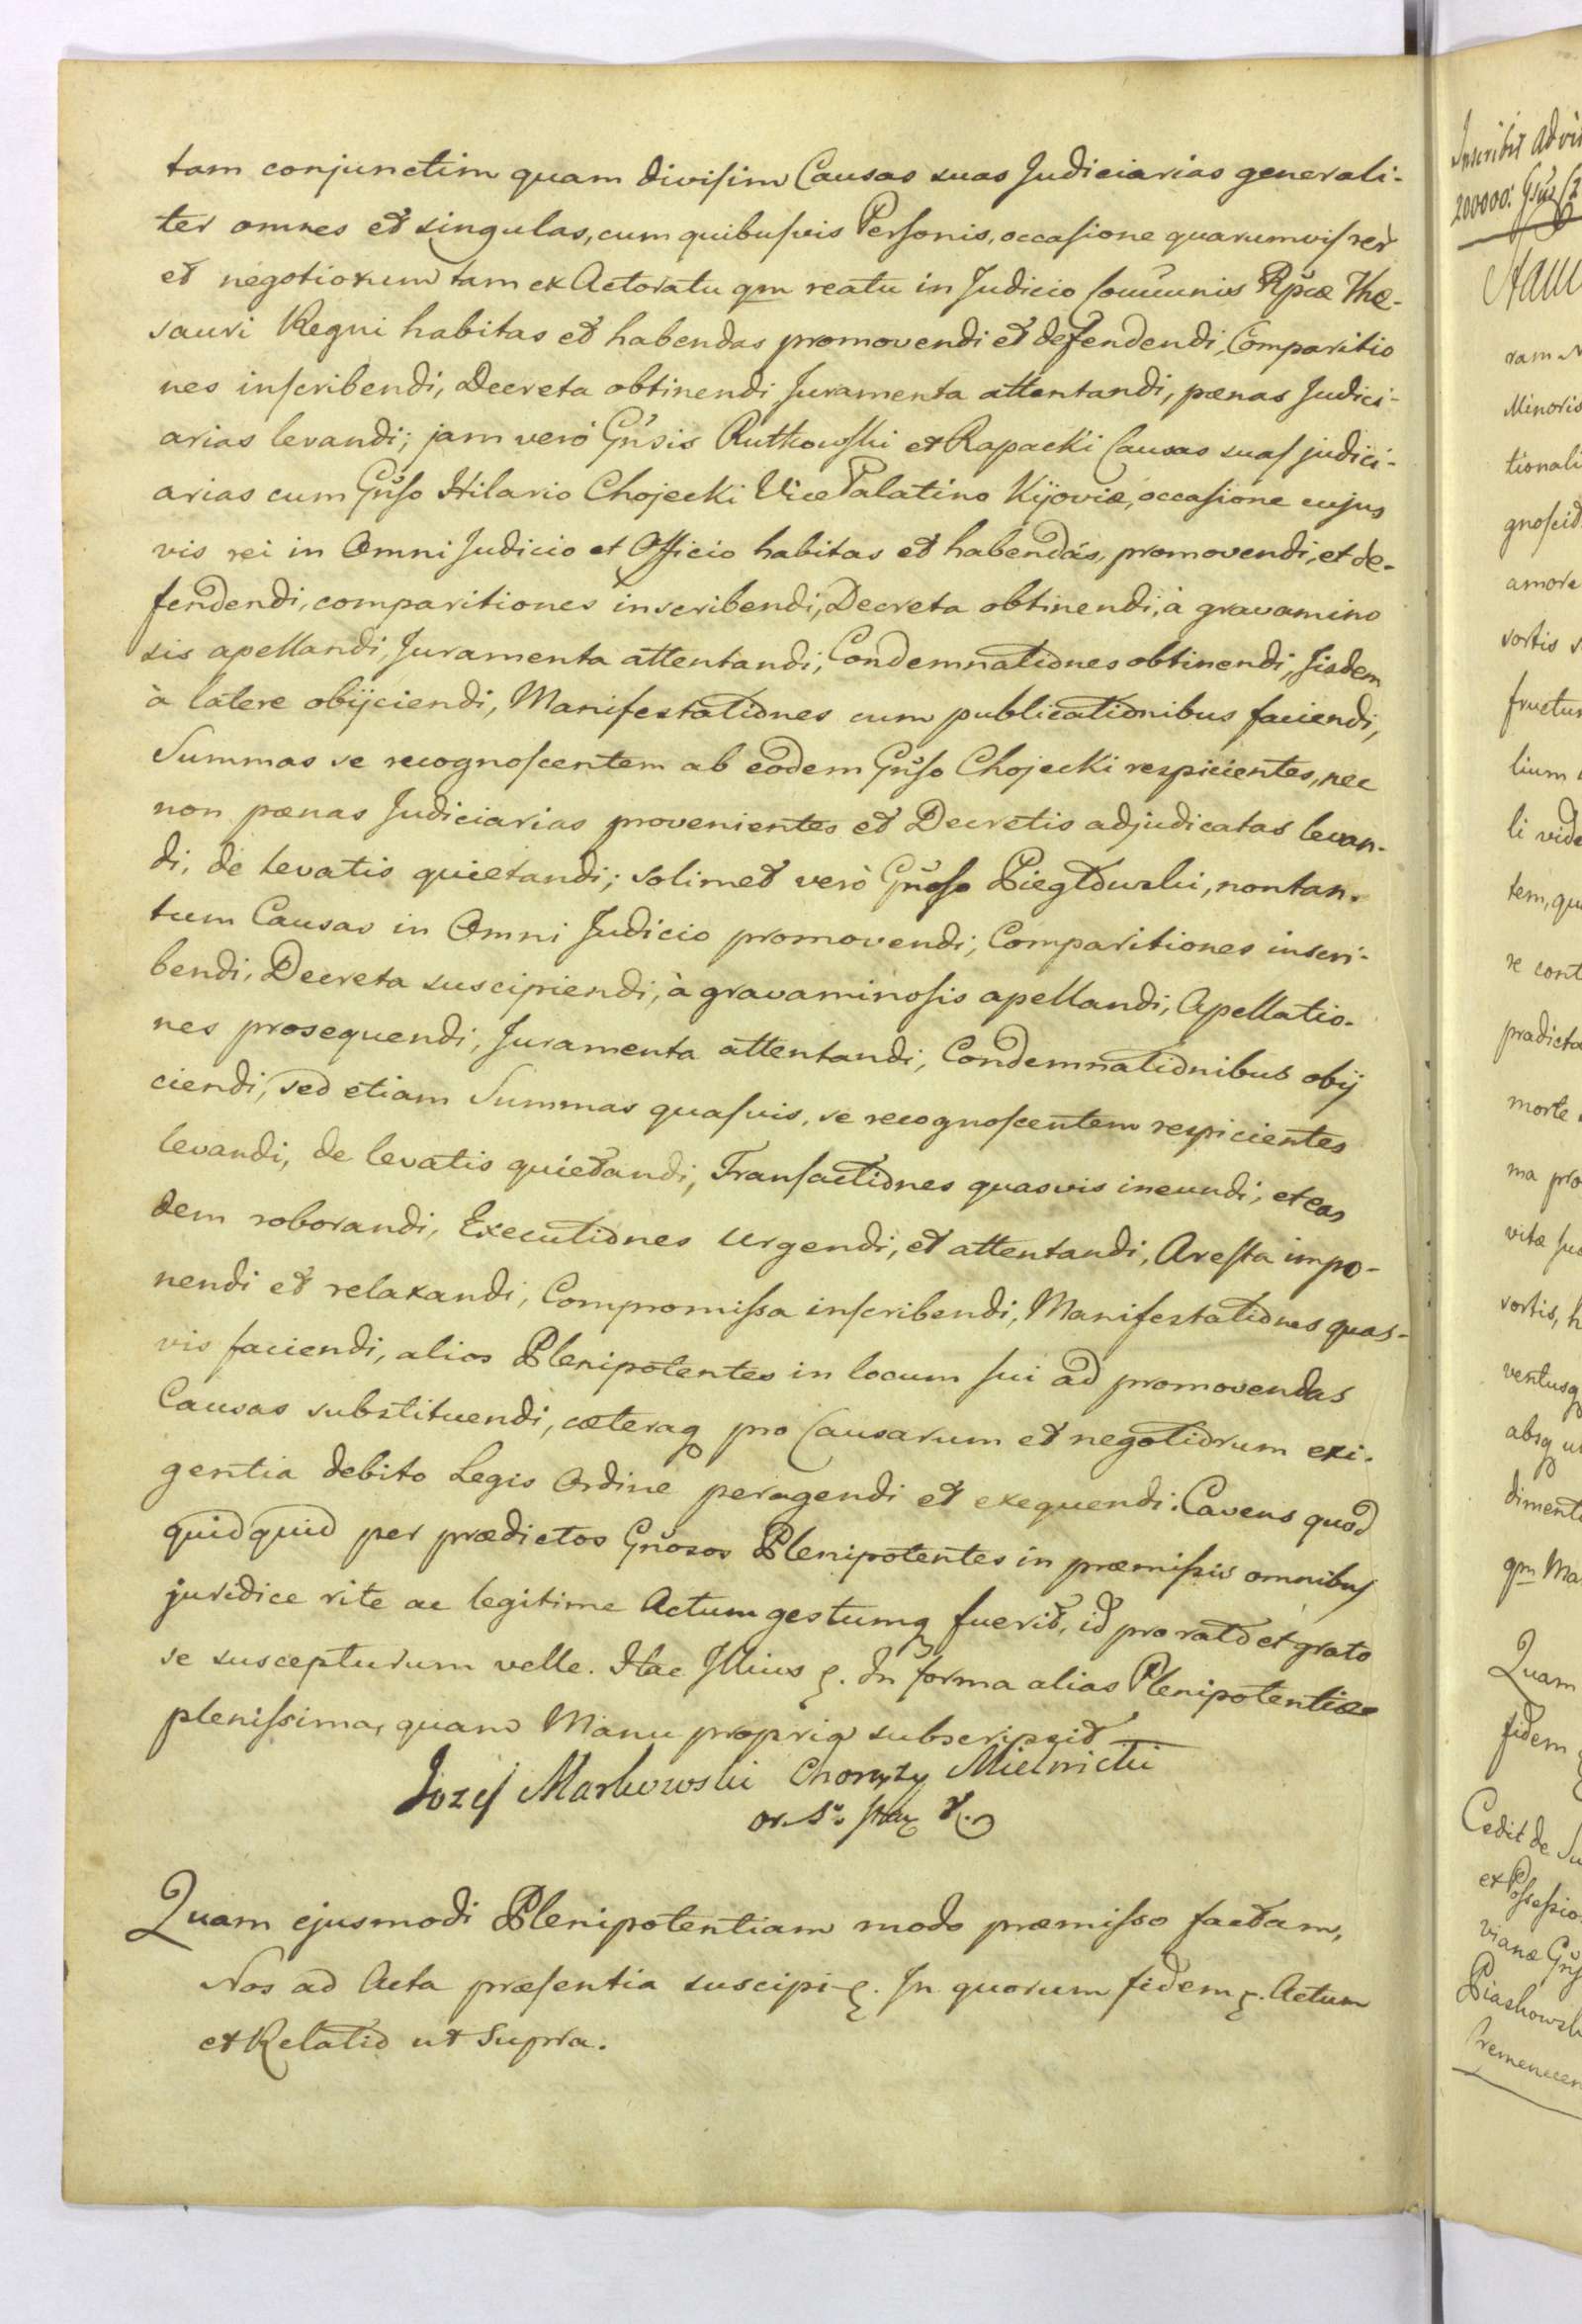 tam conjunctim quam divisim Causas suas Judiciarias generali-
ter omnes et singulas, cum quibusvis Personis, occasione quarumvis rer̃
et negotiorum tam ex Actoratu qm reatu in Judicio Com̃unis Rp̃cæ The-
sauri Regni habitas et habendas promovendi et defendendi, Comparitio
nes inscribendi, Decreta obtinendi Juramenta attentandi, pænas Judici-
arias levandi; jam verò Gñsis Rutkowski et Rapacki Causas suas judici-
arias cum Gñso Hilario Chojecki Vice Palatino Kijoviæ, occasione cujus
vis rei in Omni Judicio et Officio habitas et habendas, promovendi, et de-
fendendi, comparitiones inscribendi, Decreta obtinendi, à gravamino
sis apellandi, Juramenta attentandi, Condemnationes obtinendi, Iisdem
à latere obijciendi, Manifestationes cum publicationibus faciendi,
Summas se recognoscentem ab eodem Gñso Chojecki respicientes, nec
non pænas Judiciarias provenientes et Decretis adjudicatas levan-
di, de levatis quietandi; solimet verò Gñoso Piegłowski, nontan-
tum Causas in Omni Judicio promovendi, Comparitiones inscri-
bendi, Decreta suscipiendi, à gravaminosis apellandi, Apellatio-
nes prosequendi, Juramenta attentandi, Condemnationibus obij
ciendi, sed etiam Summas quasvis, se recognoscentem respicientes
levandi, de levatis quietandi, Transactiones quasvis ineundi, et eas
dem roborandi, Executiones Urgendi, et attentandi, Aresta impo-
nendi et relaxandi, Compromissa inscribendi, Manifestationes quas-
vis faciendi, alios Plenipotentes in locum sui ad promovendas
Causas substituendi, cæteraq pro Causarum et negotiorum exi-
gentia debito Legis Ordine peragendi et exequendi. Cavens quod
quidquid per prædictos Gñosos Plenipotentes in præmissis omnibus
juridice rite ac legitime Actum gestumq fuerit, id pro rato et grato
se suscepturum velle. Hac Illius. In forma alias Plenipotentiæ
plenissima, quam Manu propria subscripsit
Jozef Markowski Chorąży Mielnicki
Quam ejusmodi Plenipotentiam modo præmisso factam,
Nos ad Acta præsentia suscipi. In quorum fidem. Actum
et Relatio ut Supra.